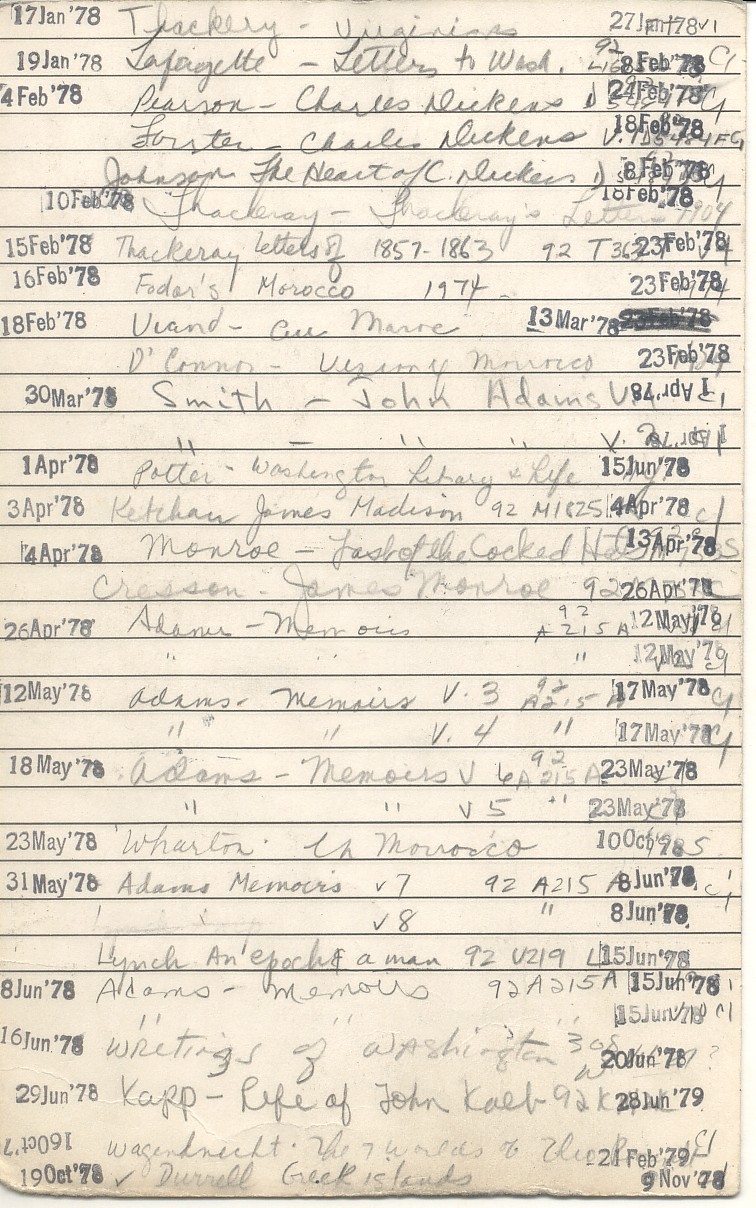 17Jan'78 Thackery - Virginians 27Jan'78
19Jan'78 Lafayette - Letters to Wash. 92 8Feb'78 C1
4Feb'78 Pearson - Charles Dickens 24Feb'78
Forster - Charles Dickens V.1 18Feb'78
Johnson The Heart of C. Dickens 8Feb'78
10Feb'78 Thackeray - Thackeray's Letters 1904 18Feb'78
15Feb'78 Thackeray Letters of 1857-1863 92 T 23Feb'78
16Feb'78 Fodor's Morocco 1974 23Feb'78
18Feb'78 Viaud - Au Maroc 13Mar'78 23Feb'78
D'Connor - Morrocco 23Feb'78
30Mar'78 Smith - John Adams V. 1Apr'78
" - " " V. 2 1Apr'78
1Apr'78 Potter - Washington Library & Life 15Jun'78
3Apr'78 Ketcham James Madison 92 M1825 4Apr'78 C1
4Apr'78 Monroe - Last of the Cocked Hats 13Apr'78
Cresson - James Monroe 92 26Apr'78
26Apr'78 Adams - Memoirs 92 A215A 12May'78
" " " 12May'78
12May'78 Adams - Memoirs V. 3 92 A215A 17May'78 C1
" " V. 4 " 17May'78 C1
18May'78 Adams - Memoirs V 6 92 A215A 23May'78
" " V 5 " 23May'78
23May'78 Wharton In Morrocco 10Oct'78
31May'78 Adams Memoirs v7 92 A215A 8Jun'78 C1
v8 " 8Jun'78
Lynch An epoch & a man 92 V219 L 15Jun'78
8Jun'78 Adams - Memoirs 92A215A 15Jun'78
" " " 15Jun'78 C1
16Jun'78 Writings of Washington 308 20Jun'78 ?
3 W
29Jun'78 Kapp - Life of John Kalb 92 K 28Jun'79
16Oct'7 Wagenknecht. The 7 Worlds of Theo R 21Feb'79
19Oct'78 ✓ Durrell Greek islands 9Nov'78